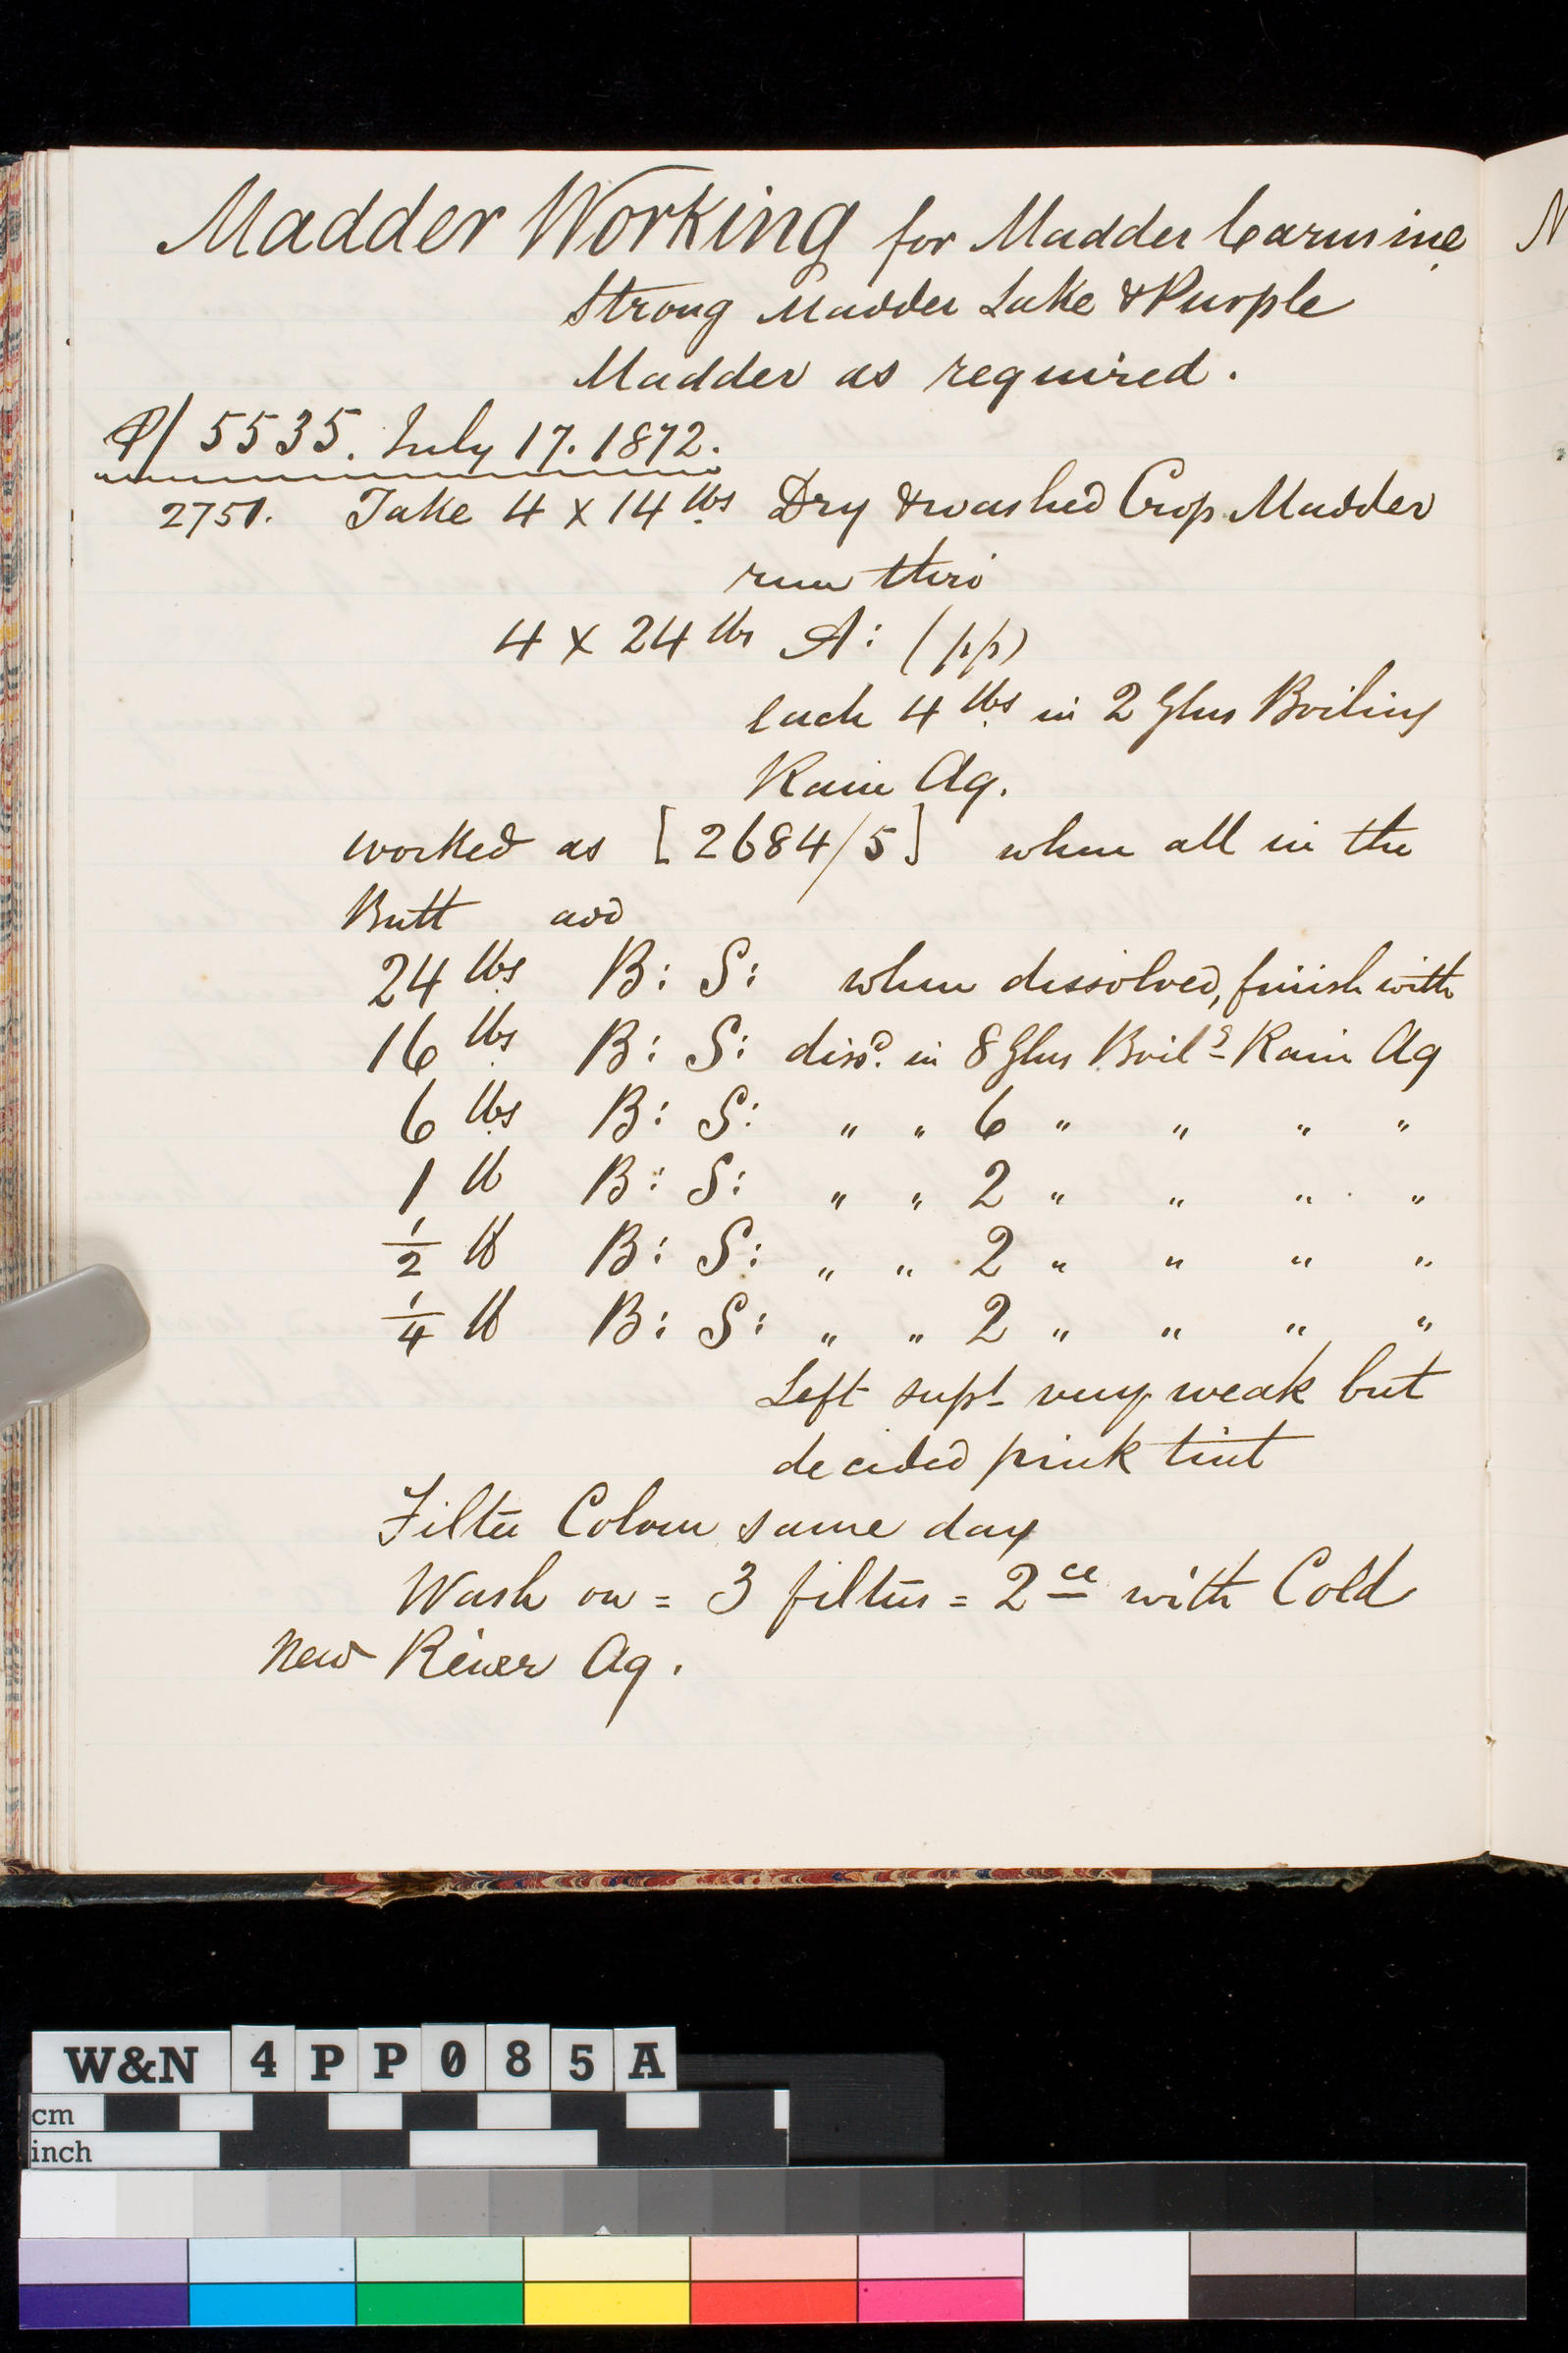 Madder Working for Madder Carmine
Strong Madder Lake & Purple
Madder as required.
P/ 5535. July 17. 1872.
2751. Take 4 x 14 lbs Dry & washed Crop Madder
run thro
4 x 24 lbs A: (pp)
each 4 lbs in 2 Glns Boiling
Rain Aq.
worked as [2684/5] when all in the
Butt add
24 lbs B: S: when dissolved, finish with
16 lbs B: S: dissd. in 8 Glns Boilg Rain Aq
6 lbs B: S: " " 6 " " " "
1 lb B: S: " " 2 " " " "
1/2 lb B: S: " " 2 " " " "
1/4 lb B: S: " " 2 " " " "
Left supt very weak but
decided pink tint
Filter Colour same day
Wash on = 3 filters = 2ce with Cold
New River Aq.
W&N 4PP085A
cm
inch